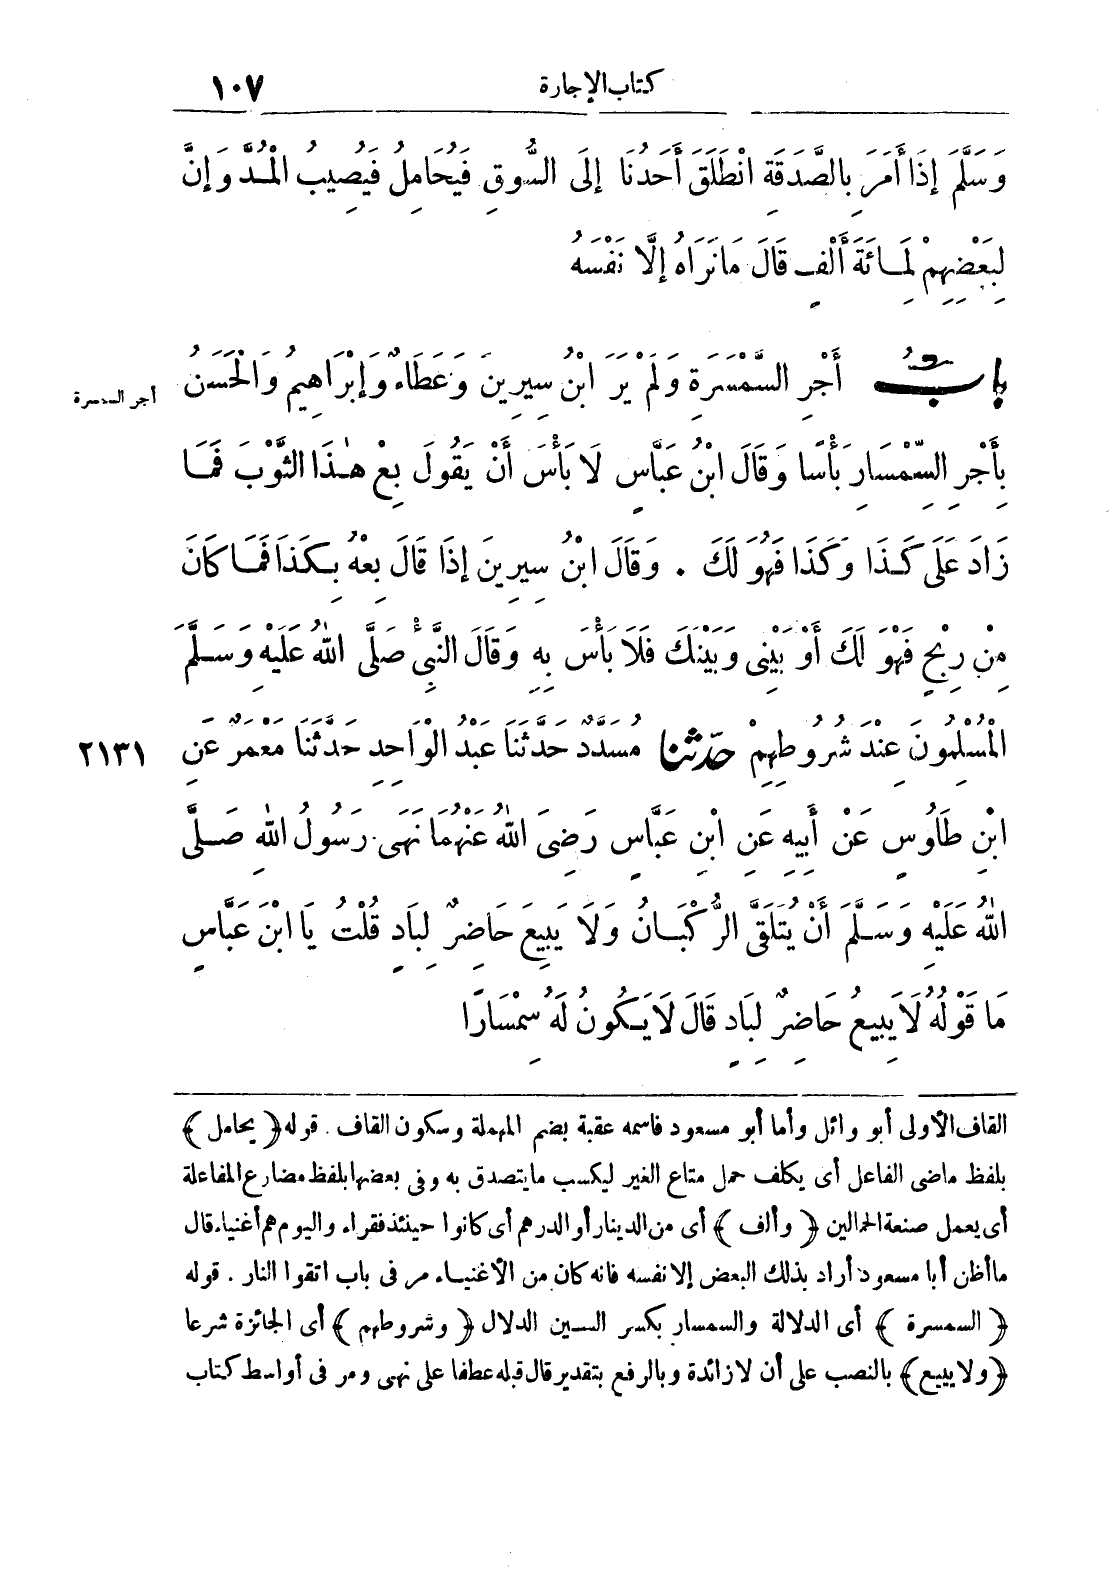 كتاب الإجارة ١٠٧
وَسَلَّمَ إِذَا أَمَرَ بِالصَّدَقَةِ انْطَلَقَ أَحَدُنَا إِلَى السُّوقِ فَيُحَامِلُ فَيُصِيبُ الْمُدَّ وَإِنَّ
لِبَعْضِهِمْ لَمِائَةَ أَلْفٍ قَالَ مَا نَرَاهُ إِلَّا نَفْسَهُ
بابُ أَجْرِ السَّمْسَرَةِ وَلَمْ يَرَ ابْنُ سِيرِينَ وَعَطَاءٌ وَإِبْرَاهِيمُ وَالْحَسَنُ
أجر السمسرة
بِأَجْرِ السِّمْسَارِ بَأْسًا وَقَالَ ابْنُ عَبَّاسٍ لَا بَأْسَ أَنْ يَقُولَ بِعْ هٰذَا الثَّوْبَ فَمَا
زَادَ عَلَى كَذَا وَكَذَا فَهُوَ لَكَ . وَقَالَ ابْنُ سِيرِينَ إِذَا قَالَ بِعْهُ بِكَذَا فَمَا كَانَ
مِنْ رِبْحٍ فَهْوَ لَكَ أَوْ بَيْنِى وَبَيْنَكَ فَلَا بَأْسَ بِهِ وَقَالَ النَّبِىُّ صَلَّى اللهُ عَلَيْهِ وَسَلَّمَ
الْمُسْلِمُونَ عِنْدَ شُرُوطِهِمْ حدّثنا مُسَدَّدٌ حَدَّثَنَا عَبْدُ الْوَاحِدِ حَدَّثَنَا مَعْمَرٌ عَنِ
٢١٣١
ابْنِ طَاوُسٍ عَنْ أَبِيهِ عَنِ ابْنِ عَبَّاسٍ رَضِىَ اللهُ عَنْهُمَا نَهَى رَسُولُ اللهِ صَلَّى
اللهُ عَلَيْهِ وَسَلَّمَ أَنْ يُتَلَقَّى الرُّكْبَانُ وَلَا يَبِيعَ حَاضِرٌ لِبَادٍ قُلْتُ يَا ابْنَ عَبَّاسٍ
مَا قَوْلُهُ لَا يَبِيعُ حَاضِرٌ لِبَادٍ قَالَ لَا يَكُونُ لَهُ سِمْسَارًا
القاف الأولى أبو وائل وأما أبو مسعود فاسمه عقبة بضم المهملة وسكون القاف . قوله ﴿ يحامل ﴾
بلفظ ماضى الفاعل أى يكلف حمل متاع الغير ليكسب ما يتصدق به وفى بعضها بلفظ مضارع المفاعلة
أى يعمل صنعة الحمالين ﴿ وألف ﴾ أى من الدينار أو الدرهم أى كانوا حينئذ فقراء واليوم هم أغنياء قال
ما أظن أبا مسعود أراد بذلك البعض إلا نفسه فانه كان من الأغنياء مر فى باب اتقوا النار . قوله
﴿ السمسرة ﴾ أى الدلالة والسمسار بكسر السين الدلال ﴿ وشروطهم ﴾ أى الجائزة شرعا
﴿ ولا يبيع ﴾ بالنصب على أن لا زائدة وبالرفع بتقدير قال قبله عطفا على نهى ومر فى أواسط كتاب